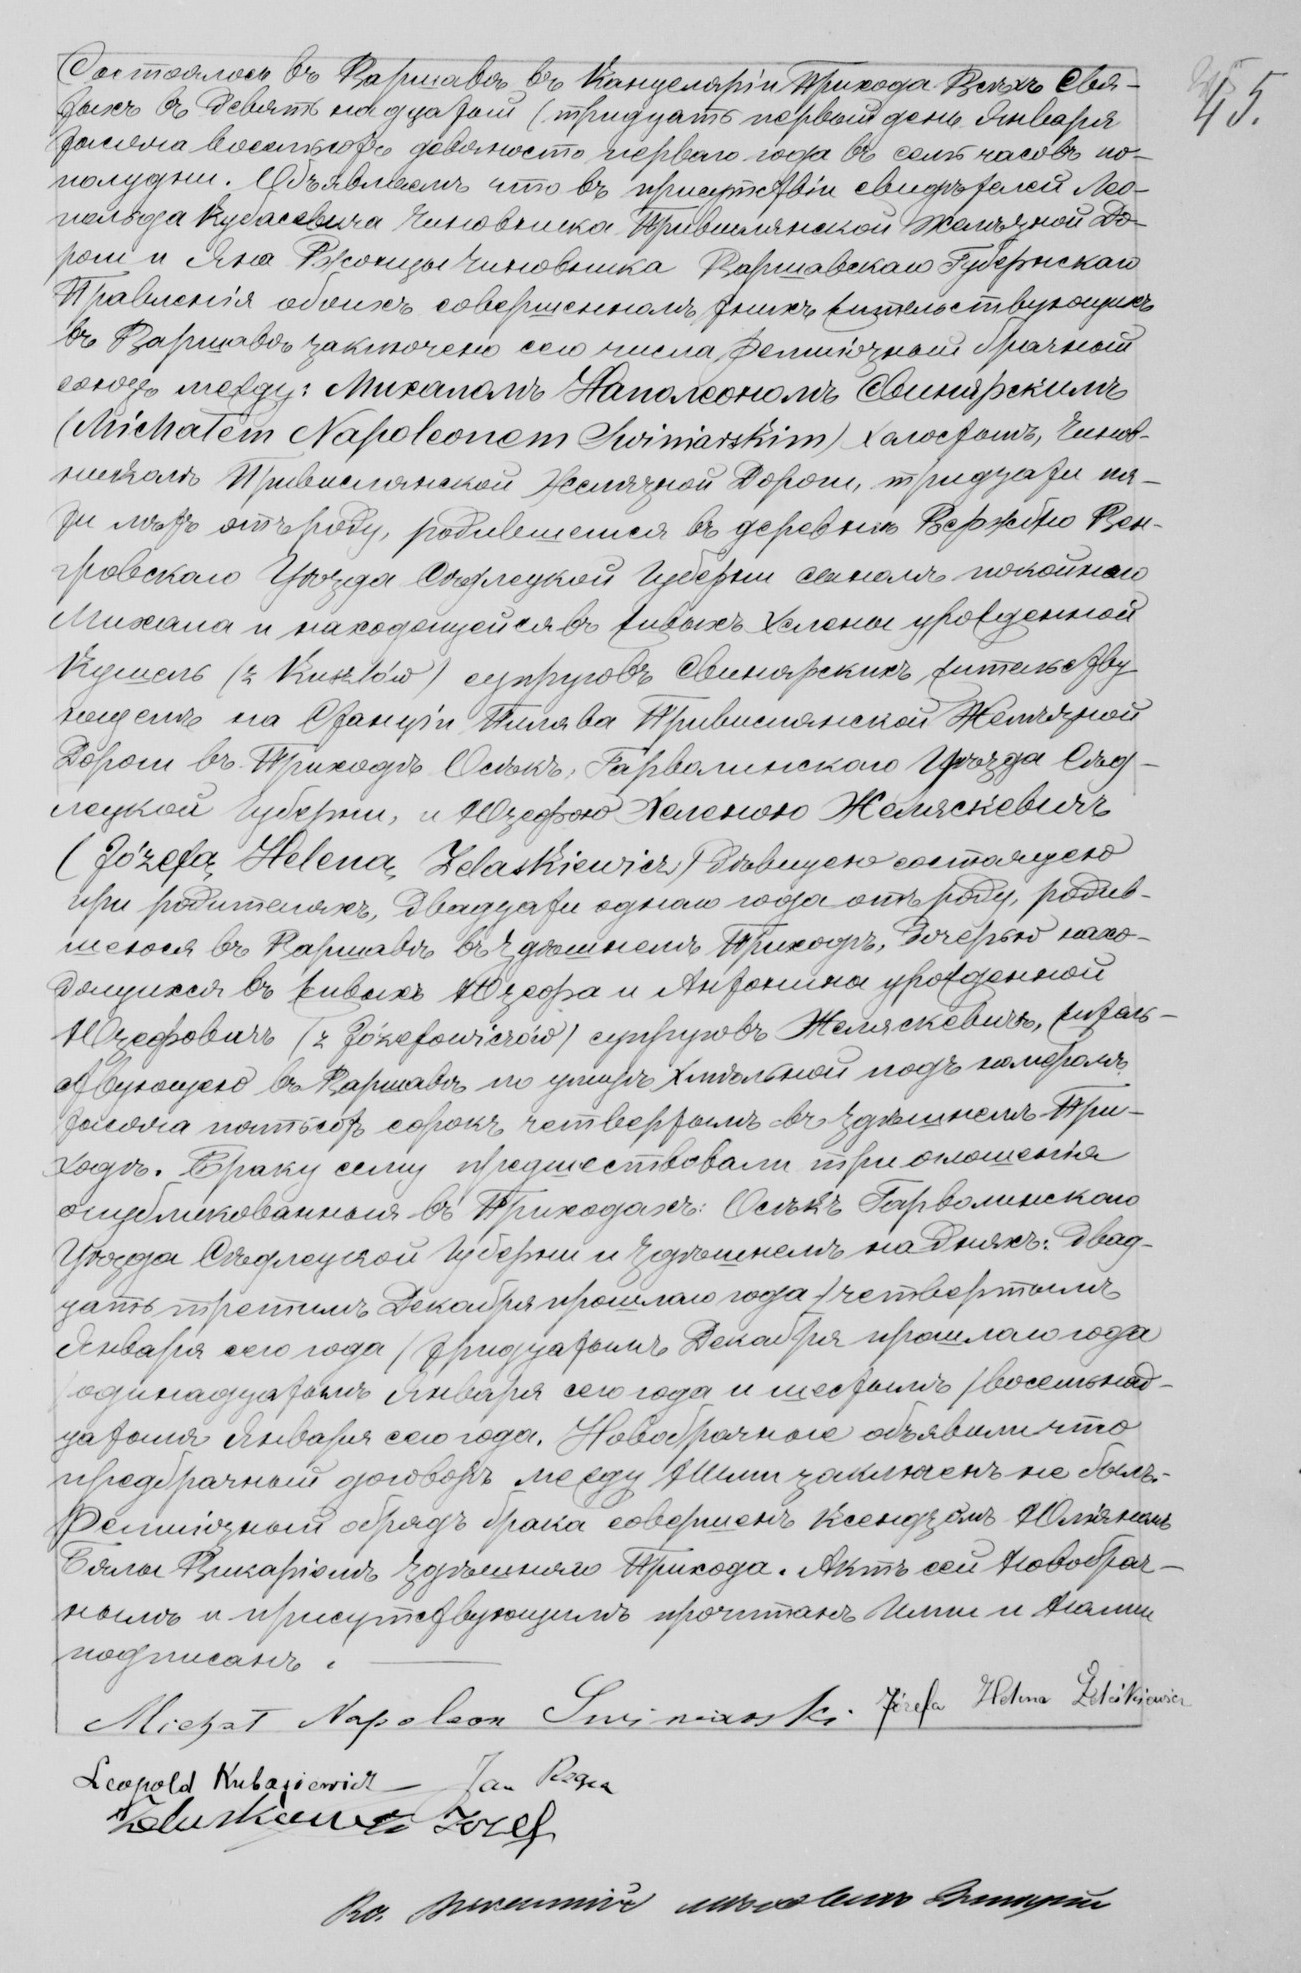 45.
Состоялось въ Варшавѣ въ Канцеляріи Прихода Всѣхъ Свя-
тыхъ въ девятьнадцатый (тридцать первый день Января
тысяча восемьсотъ девяносто перваго года въ семь часовъ по-
полудни. Объявляемъ что въ присутствіи свидѣтелей Лео-
польда Кубасевича Чиновника Привислянской Желѣзной До-
роги и Яна Чиновника Варшавскаго Губернскаго
Правленія обоихъ совершеннолѣтнихъ жительствующихъ
въ Варшавѣ заключено сего числа религіозный брачный
союзъ между: Михаломъ Наполеономъ Свинярскимъ
(Michałem Napoleonem Swiniarskim) холостымъ, Чинов-
никомъ Привислянской Желѣзной Дороги, тридцати пя-
ти лѣтъ отъ роду, родившемся въ деревнѣ Вержбно Вен-
гровскаго Уѣзда Сѣдлецкой Губерніи сыномъ покойнаго
Михала и находящейся въ живыхъ Хелены урожденной
Кушель (z Kuszlów) супруговъ Свинярскихъ, жительству
ющемъ на Станціи Пилява Привислянской Желѣзной
Дороги въ Приходѣ Осѣкъ, Гарволинскаго Уѣзда Сѣд-
лецкой Губерніи, и Юзефою Хеленою Желяскевичъ
(Józefą Heleną Żelaskiewicz) Дѣвицею состоящею
при родителяхъ, двадцати одного года отъ роду, родив-
шеюся въ Варшавѣ въ здѣшнемъ Приходѣ, дочерью нахо-
дящихся въ живыхъ Юзефа и Антонины урожденной
Юзефовичъ (z Józefowiczów) супруговъ Желяскевичъ, житель-
ствующею въ Варшавѣ по улицѣ Хмѣльной подъ номеромъ
тысяча пятьсотъ сорокъ четвертымъ въ здѣшнемъ При-
ходѣ. Браку сему предшествовали три оглашенія
опубликованныя въ Приходахъ: Осѣкъ Гарволинскаго
Уѣзда Сѣдлецкой Губерніи и здѣшнемъ на дняхъ: двад-
цать третьимъ Декабря прошлаго года /четвертымъ
Января сего года / тридцатымъ Декабря прошлаго года
/одинадцатымъ Января сего года и шестымъ /восемьнад-
цатымъ Января сего года. Новобрачные объявили что
предбрачный договоръ между Ними заключенъ не былъ.
Религіозный обрядъ брака совершенъ Ксендзомъ Юліяномъ
Бялы Викаріемъ здѣшняго Прихода. Актъ сей Новобрач-
нымъ и присутствующимъ прочитанъ Ими и Нами
подписанъ.
Michał Napoleon Swiniarski. Józefa Helena Żelaskiewicz
Leopold Kubasiewicz Jan
Żelaskiewicz Józef